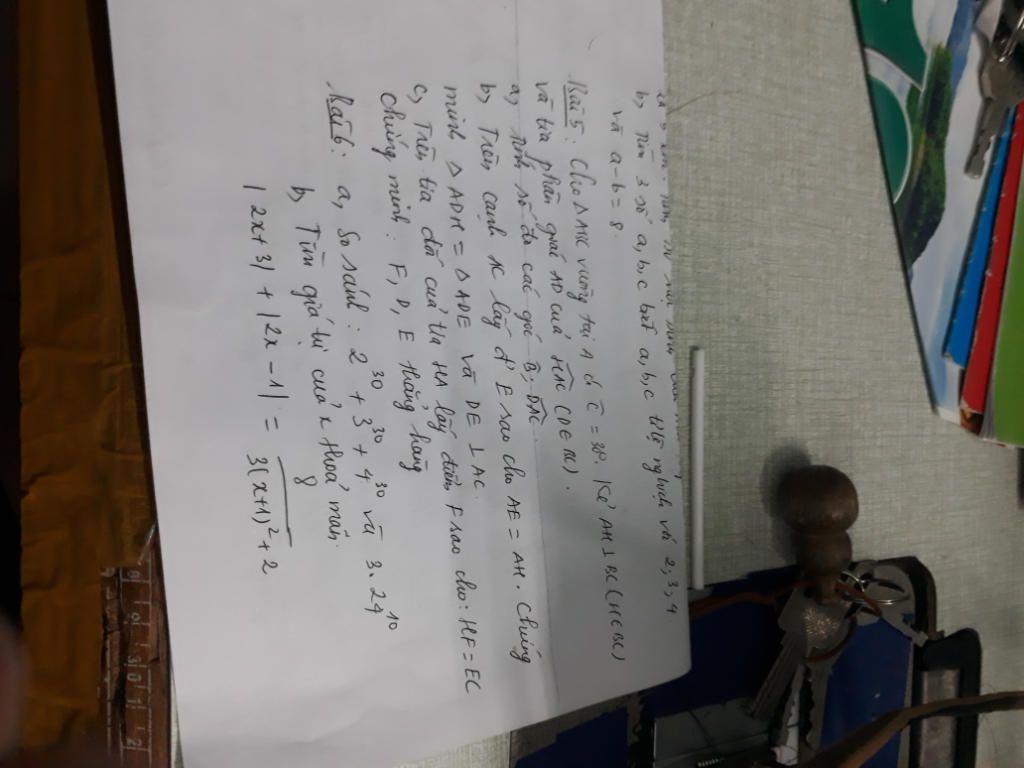 b, Tìm 3 số a, b, c biết a, b, c tỉ lệ nghịch với 2, 3, 4
và a - b = 8.
Bài 5: Cho △ABC vuông tại A có Ĉ = 30°. Kẻ AH ⊥ BC (H ∈ BC)
và tia phân giác AD của HAC (D ∈ BC).
a, Tính số đo các góc B, DAC
b, Trên cạnh AC lấy đ' E sao cho AE = AH. Chứng
minh △ADH = △ADE và DE ⊥ AC.
c, Trên tia đối của tia HA lấy điểm F sao cho: HF = EC
Chứng minh: F, D, E thẳng hàng
Bài 6: a, So sánh: 2³⁰ + 3³⁰ + 4³⁰ và 3.24¹⁰
b, Tìm giá trị của x thoả mãn.
|2x+3| + |2x-1| = 8 / 3(x+1)² + 2